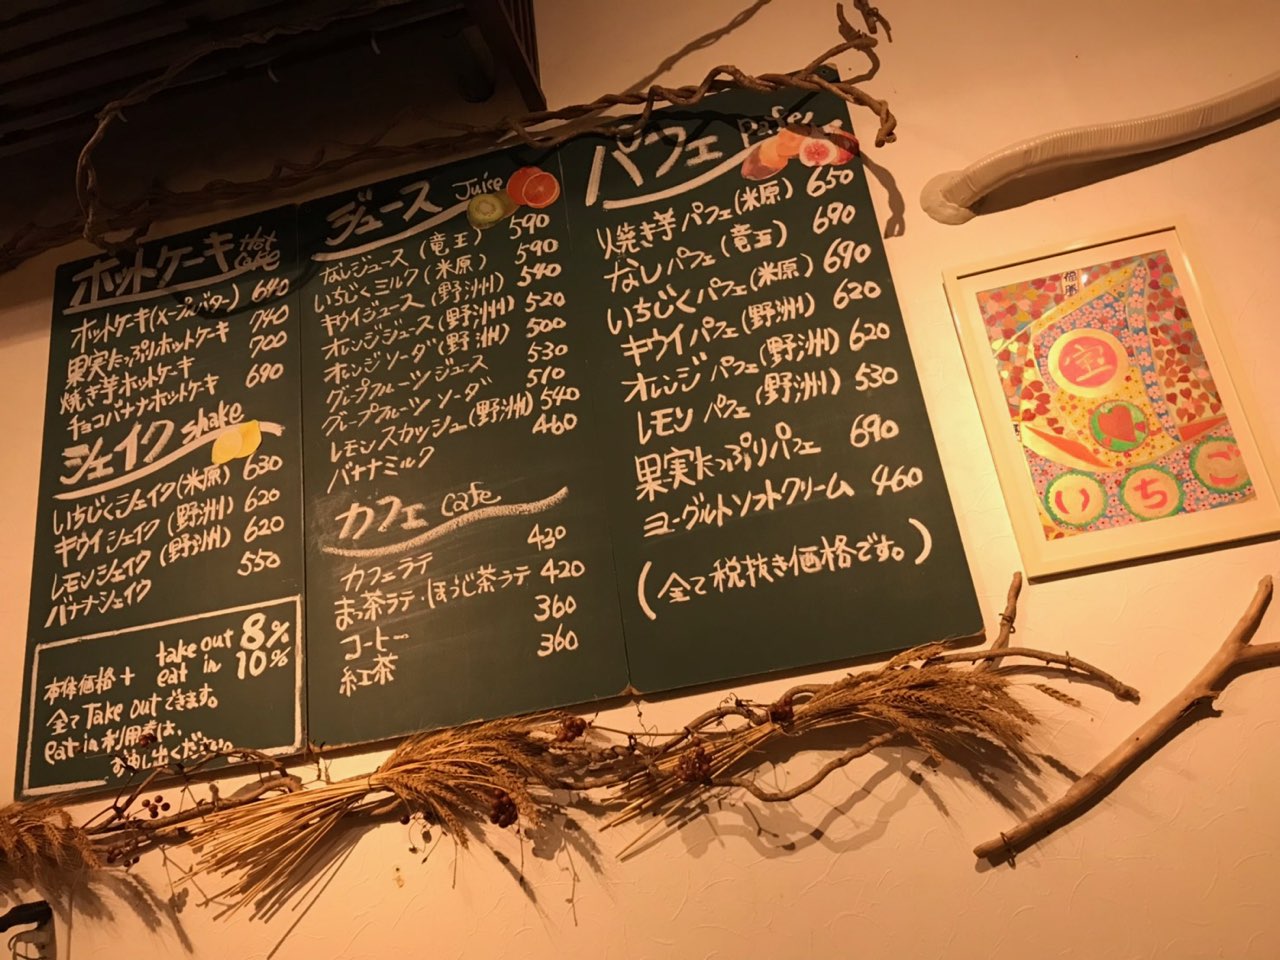 ホットケーキ Hot Cake
ホットケーキ(メープルバター) 640
果実たっぷりホットケーキ 740
焼き芋ホットケーキ 700
チョコバナナホットケーキ 690
シェイク shake
いちじくシェイク(米原) 630
キウイシェイク(野洲) 620
レモンシェイク(野洲) 620
バナナシェイク 550
本体価格+ take out 8%
eat in 10%
全てTake outできます。
eat in利用者は、
お申し出ください。
ジュース Juice
なしジュース(竜王) 590
いちじくミルク(米原) 590
キウイジュース(野洲) 540
オレンジジュース(野洲) 520
オレンジソーダ(野洲) 500
グレープフルーツジュース 530
グレープフルーツソーダ 510
レモンスカッシュ(野洲) 540
バナナミルク 460
カフェ cafe
カフェラテ 430
まっ茶ラテ・ほうじ茶ラテ 420
コーヒー 360
紅茶 360
パフェ pafe
焼き芋パフェ(米原) 650
なしパフェ(竜王) 690
いちじくパフェ(米原) 690
キウイパフェ(野洲) 620
オレンジパフェ(野洲) 620
レモンパフェ(野洲) 530
果実たっぷりパフェ 690
ヨーグルトソフトクリーム 460
(全て税抜き価格です。)
いちご